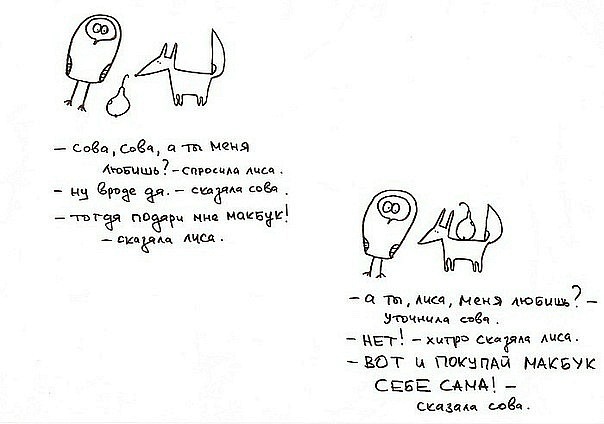 – сова, сова, а ты меня
любишь? – спросила лиса.
– ну вроде да. – сказала сова.
– тогда подари мне макбук!
– сказала лиса.
– а ты, лиса, меня любишь? –
уточнила сова.
– НЕТ! – хитро сказала лиса.
– ВОТ и ПОКУПАЙ МАКБУК
СЕБЕ САМА! –
сказала сова.